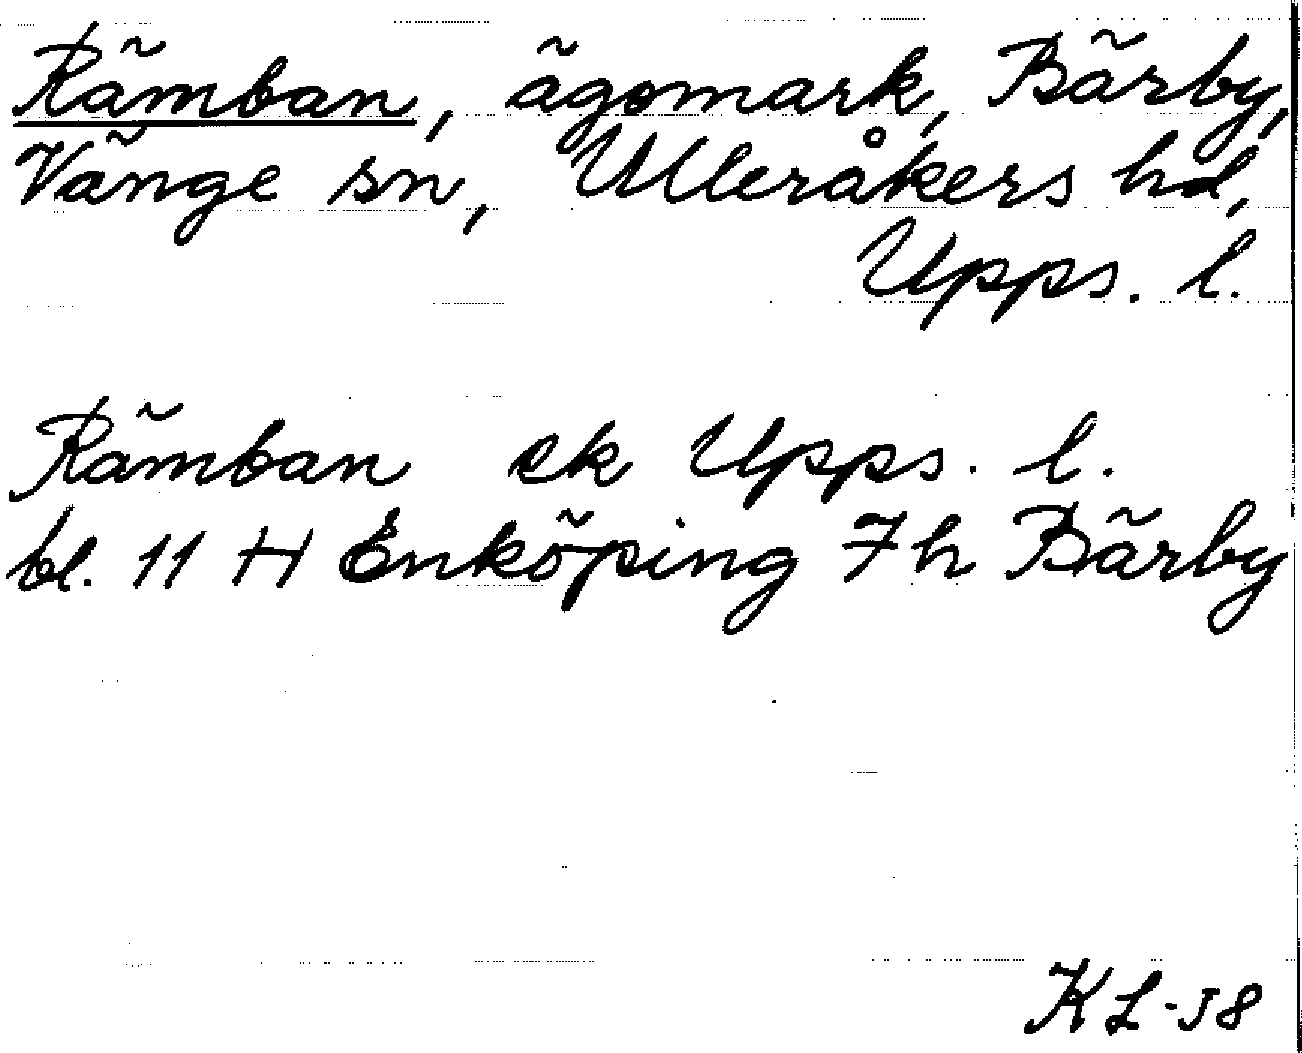 Rämban, ägomark, Bärby,
Vänge sn, Ulleråkers hd,
Upps. l.
Rämban ek Upps. l.
bl. 11 H Enköping 7h Bärby
KL-58